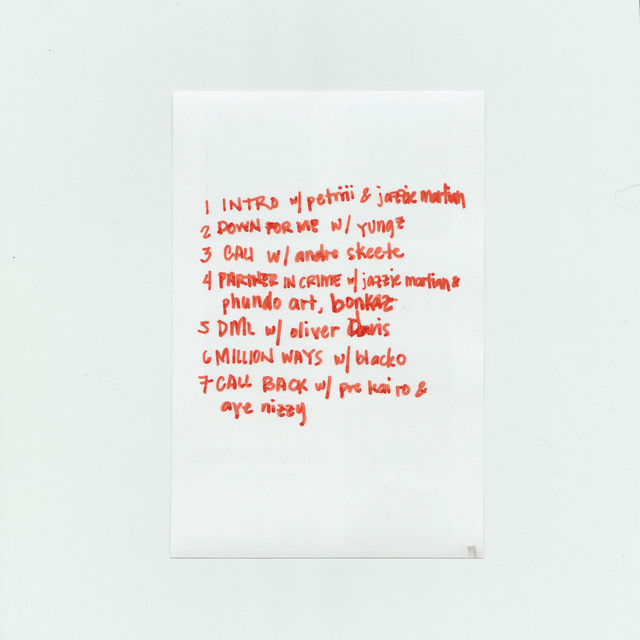 1 INTRO w/ petriii & jazzie martian
2 DOWN FOR ME w/ yungz
3 CALI w/ andre skeete
4 PARTNER IN CRIME w/ jazzie martian &
phundo art, bonkaz
5 DML w/ oliver Davis
6 MILLION WAYS w/ blacko
7 CALL BACK w/ pre kai ro &
aye nizzy